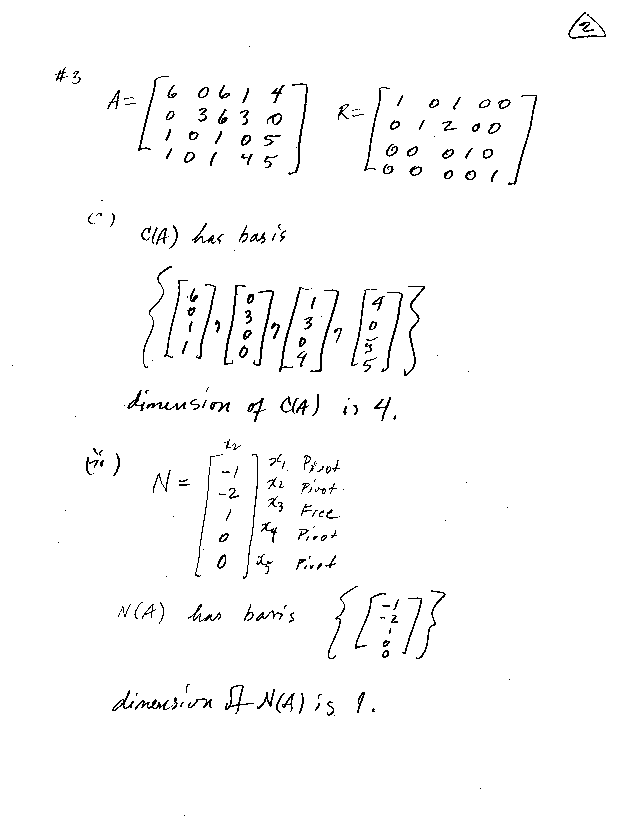 2
#3
A = [ 6 0 6 1 4 R = [ 1 0 1 0 0
0 3 6 3 0 0 1 2 0 0
1 0 1 0 5 0 0 0 1 0
1 0 1 4 5 ] 0 0 0 0 1 ]
C(A) has basis
{ [ 6 0 1 1 ] , [ 0 3 0 0 ] , [ 1 3 0 4 ] , [ 4 0 5 5 ] }
dimension of C(A) is 4.
N = [ -1 x1 Pivot
-2 x2 Pivot
1 x3 Free
0 x4 Pivot
0 ] x5 Pivot
N(A) has basis { [ -1 -2 1 0 0 ] }
dimension of N(A) is 1.